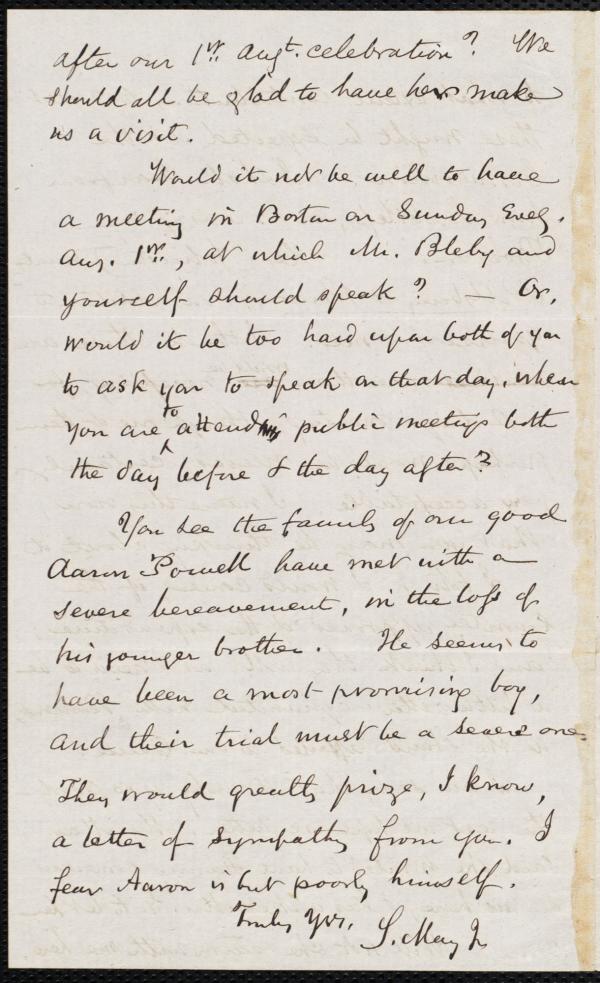 after our 1st. Augt. celebration? We
should all be glad to have her make
us a visit.
Would it not be well to have
a meeting in Boston on Sunday Eveg.
Aug. 1st., at which Mr. Bleby and
yourself should speak? — Or,
would it be too hard upon both of you
to ask you to speak on that day, when
you are to attend public meetings both
the day before & the day after?
You see the family of our good
Aaron Powell have met with a
severe bereavement, in the loss of
his younger brother. He seems to
have been a most promising boy,
and their trial must be a severe one.
They would greatly prize, I know,
a letter of sympathy from you. I
fear Aaron is but poorly himself.
Truly Yrs,
S. May Jr